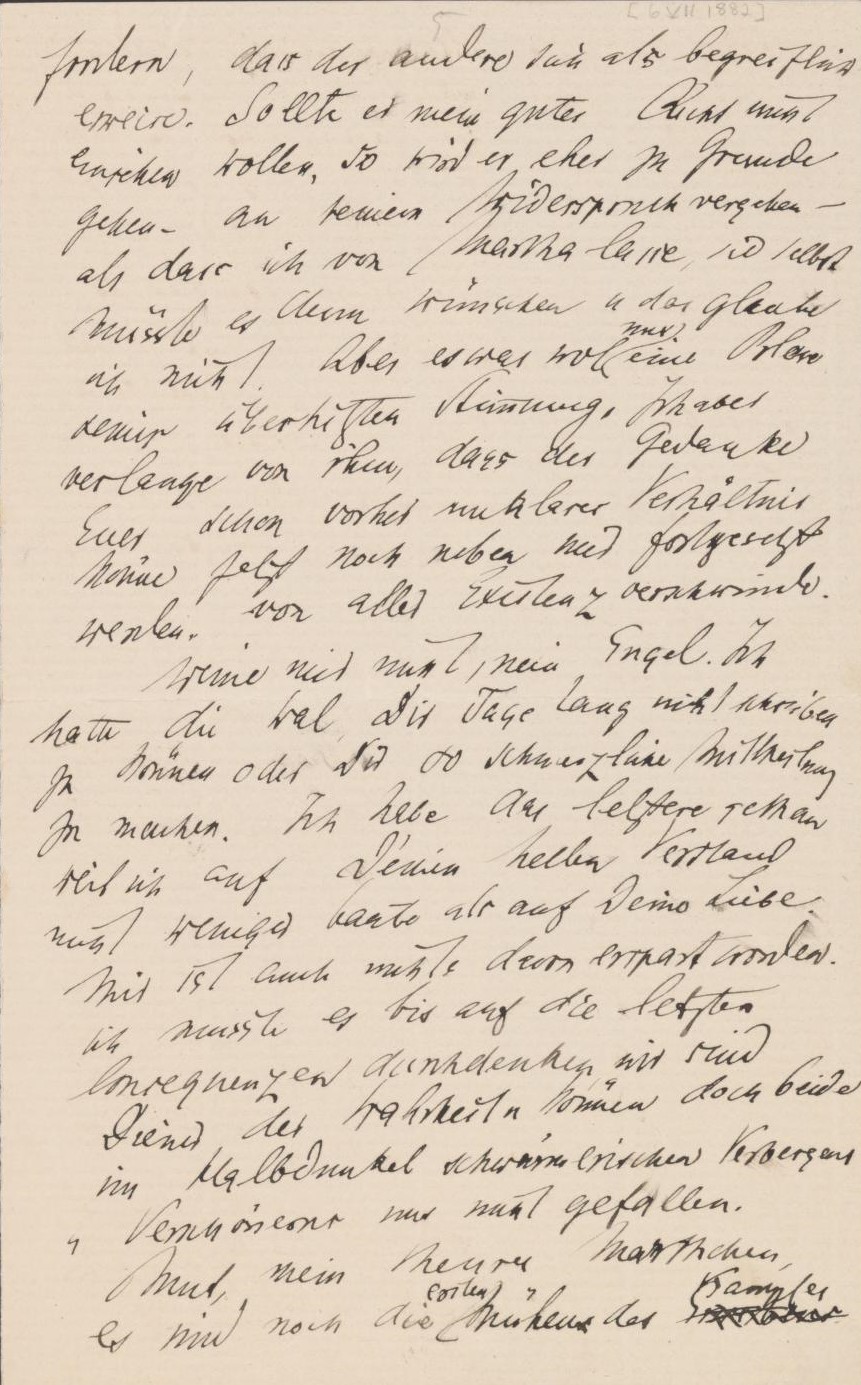 [6 VII 1882]
fordern, dass der andere sich als begreiflich
erweise. Sollte er mein gutes Recht nicht
einsehen wollen, so wird er eher zu Grunde
gehen – an seinem Widerspruch vergehen –
als dass ich von Martha lasse, sie selbst
müsste es denn wünschen u das glaube
ich nicht. Aber es war wol nur eine Blase
meiner überhitzten Stimmung. Ich aber
verlange von ihm, dass der Gedanke
Euer schon vorher unklares Verhältnis
könne jetzt noch neben mir fortgesetzt
werden. von aller Existenz verschwinde.
Weine mir nicht, mein Engel. Ich
hatte die Wal, Dir Tage lang nicht schreiben
zu können oder Dir so schmerzliche Mittheilung
zu machen. Ich habe das letztere gethan
weil ich auf Deinen hellen Verstand
nicht weniger baute als auf Deine Liebe.
Mir ist auch nichts davon erspart worden.
ich musste es bis auf die letzten
Consequenzen durchdenken, wir sind
Diener der Wahrheit u können doch beide
im Halbdunkel schwärmerischen Verbergens
u Verschönerns uns nicht gefallen.
Mut, mein theures Marthchen,
es sind noch die ersten Mühen des Kampfes